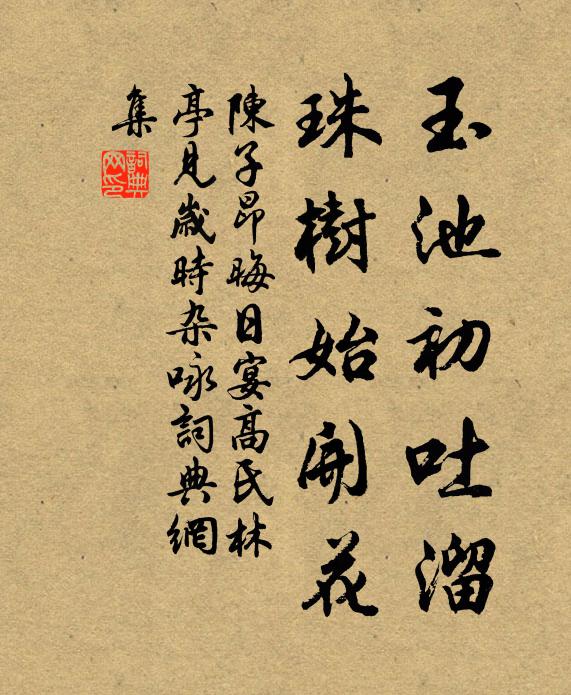 玉池初吐溜
珠樹始開花
陳子昂晦日宴高民林
亭見歲時杂咏詞典網
集
詞典
网印